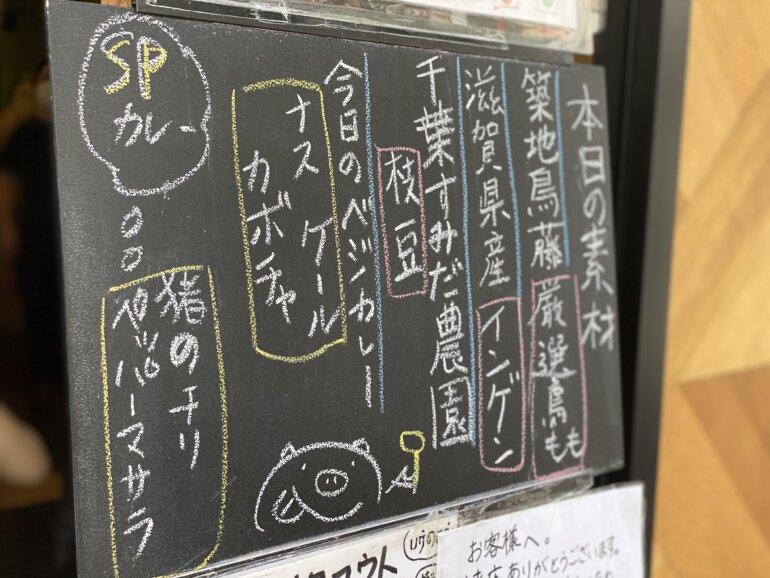 本日の素材
築地鳥藤 厳選鳥もも
滋賀県産 インゲン
千葉すみだ農園
枝豆
今日のベジカレー
ナス ケール
カボチャ
SP
カレー
猪のチリ
ペッパーマサラ
お客様へ。